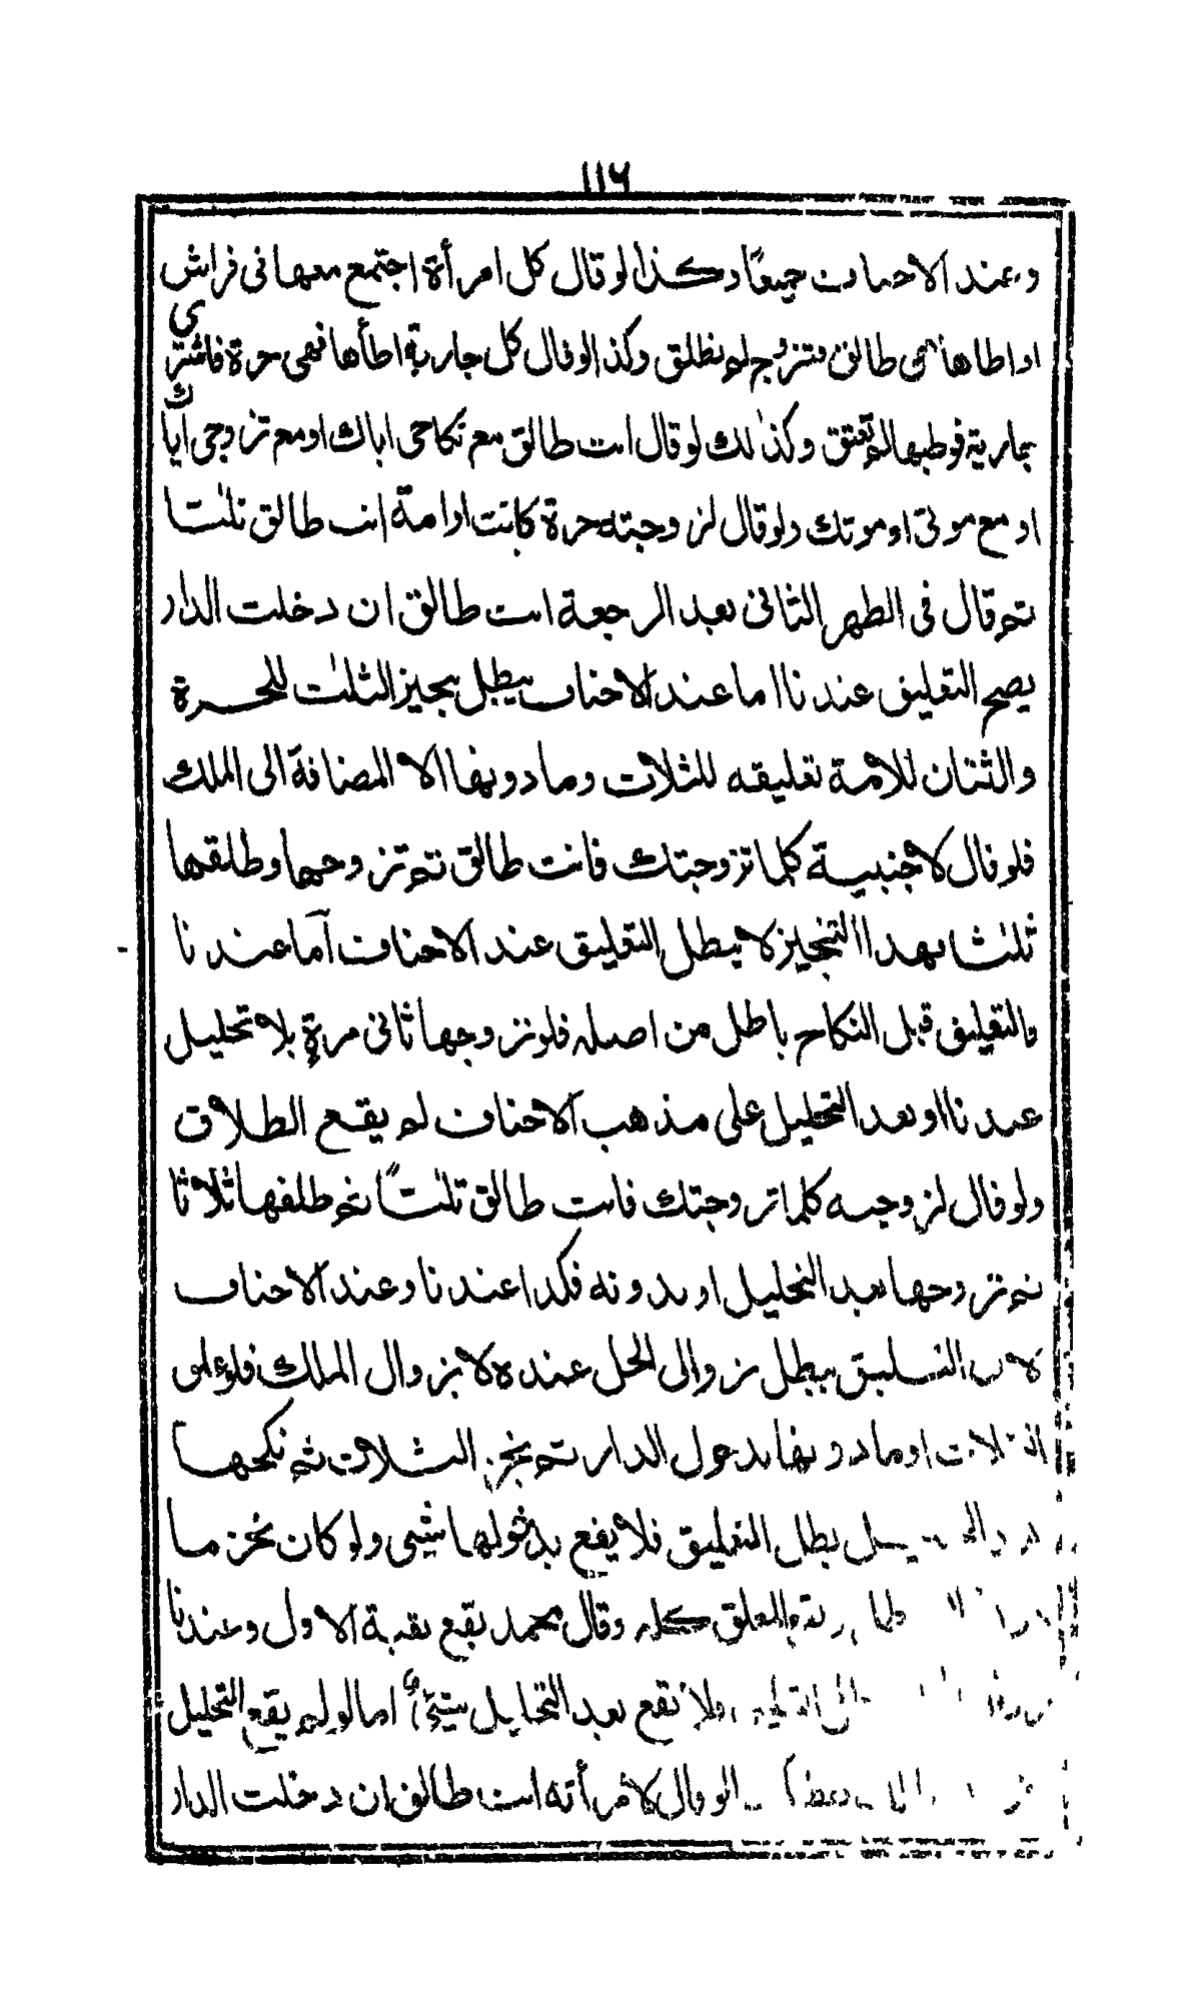 ١١٦
وعند الاحناف جميعًا وكذا لو قال كل امرأة اجتمع معها فى فراش
او اطاها فهى طالق فتزوج لم تطلق وكذا لو قال كل جارية اطأها فهى حرة فاشترى
بجارية فوطيها لم تعتق وكذٰلك لو قال انت طالق مع نكاحى اياك او مع تزوجى اياك
او مع موتى او موتك ولو قال لزوجته حرة كانت او امة انت طالق ثلٰثا
ثم قال فى الطهر الثانى بعد الرجعة انت طالق ان دخلت الدار
يصح التعليق عندنا اما عند الاحناف يبطل بتجيز الثلٰث للحرة
والثنتان للامة تعليقه للثلاث وما دونها الا المضافة الى الملك
فلو قال لاجنبية كلما تزوجتك فانت طالق ثم تزوجها وطلقها
ثلٰثا بهذا التنجيز لا يبطل التعليق عند الاحناف اما عندنا
فالتعليق قبل النكاح باطل من اصله فلو تزوجها ثانى مرة بلا تحليل
عندنا او بعد التحليل على مذهب الاحناف لم يقع الطلاق
ولو قال لزوجته كلما تزوجتك فانت طالق ثلٰثًا ثم طلقها ثلاثا
ثم تزوجها بعد التحليل او بدونه فكذا عندنا وعند الاحناف
لان التعليق يبطل بزوال الحل عنده لا بزوال الملك فلو علق
الثلاث او ما دونها بدخول الدار ثم نجز الثلاث ثم نكحها
بطل التعليق فلا يقع بدخولها شيى ولو كان نجز ما
المعلق كله وقال محمد يقع بقية الاول وعندنا
ولا تقع بعد التحليل شيئ اما لو لم يقع التحليل
لو قال لامرأته انت طالق ان دخلت الدار